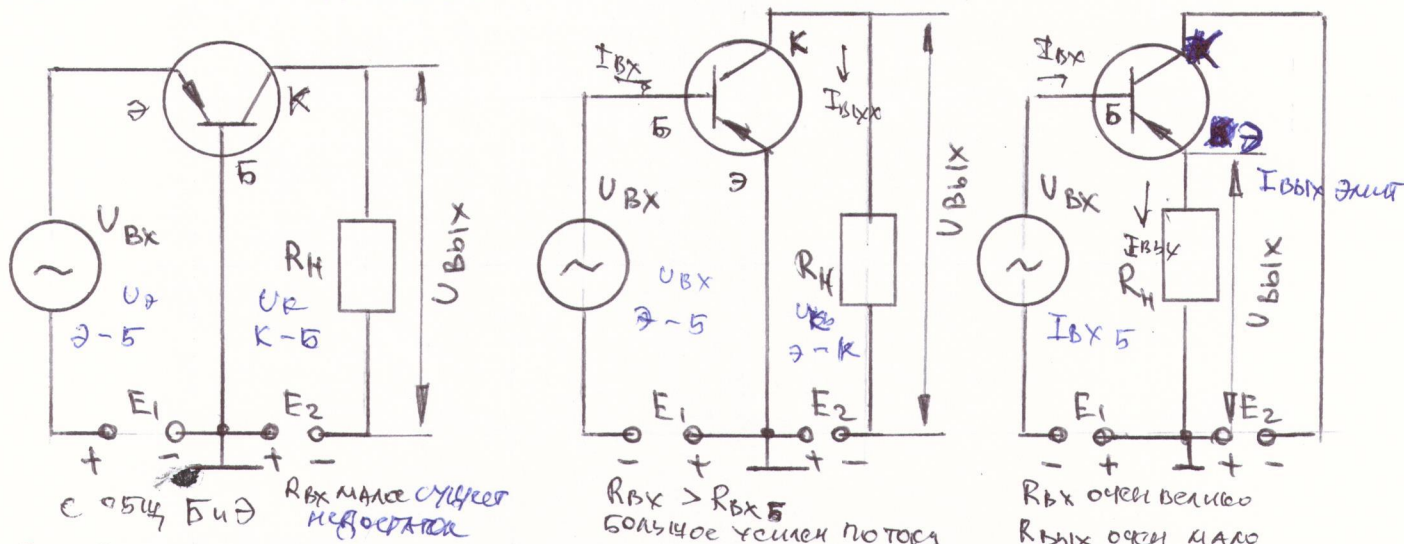 Э
К
Б
U вх
Uэ
Э-Б
Rн
Uк
К-Б
Uвых
E1
E2
+ - + -
с общ Б и Э
Rвх малое сущест
недостаток
Iвх
К
Б
Э
Iвых
U вх
U вх
Э-Б
Rн
Э-К
Uвых
E1
E2
- + + -
Rвх > Rвх Б
большое усилен по току
Iвх
Б
Э
Iвых эмит
U вх
Iвых
Rн
Iвх Б
Uвых
E1
E2
- + + -
Rвх очен велико
Rвых очен мало